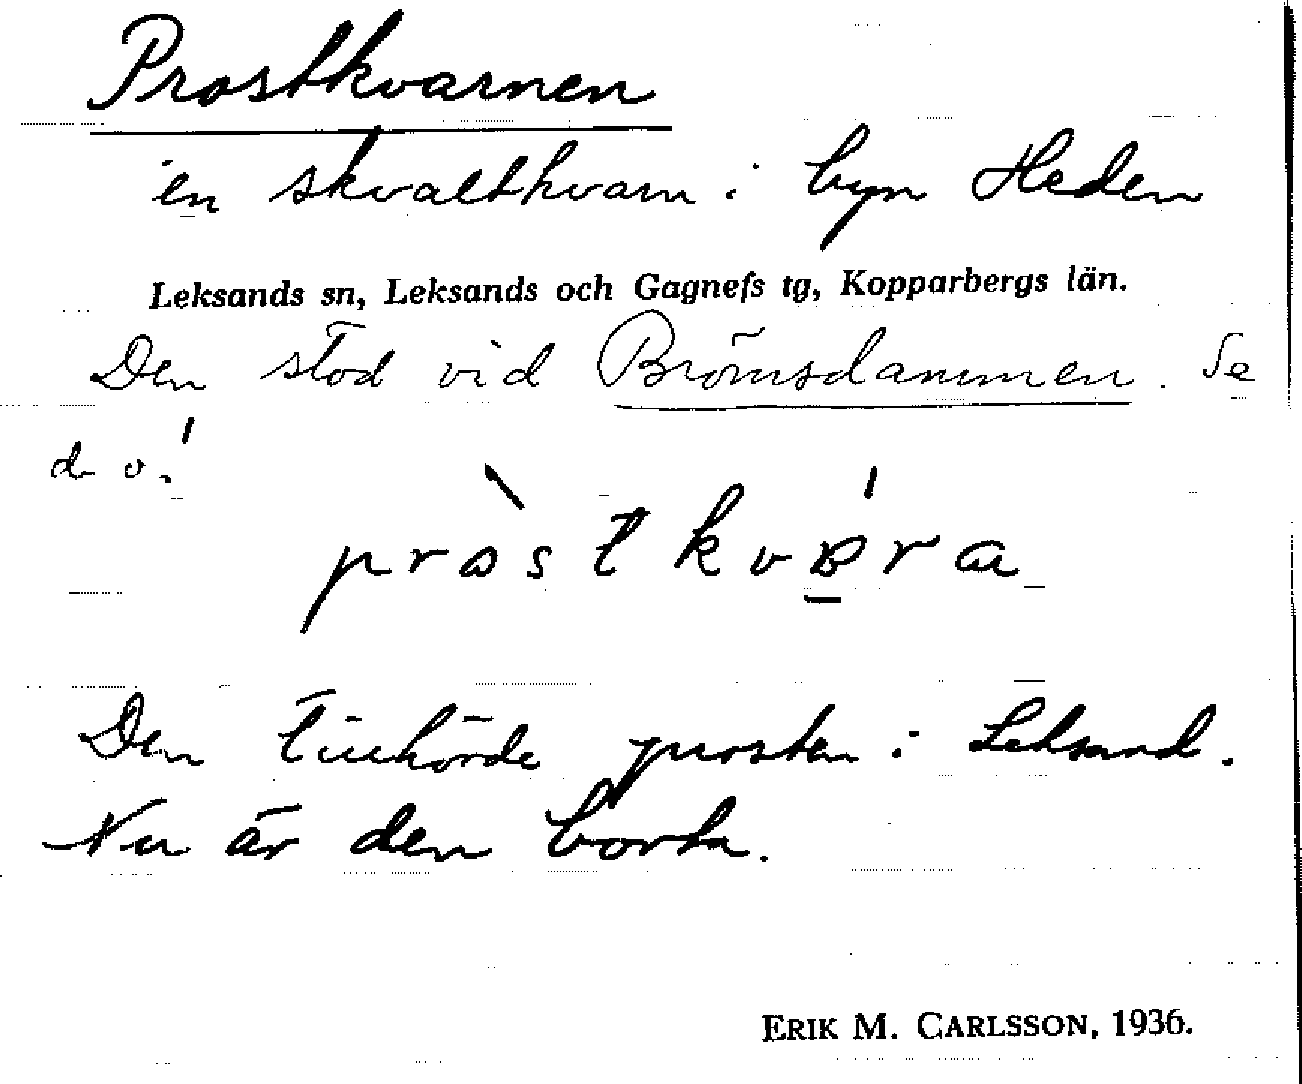 Prostkvarnen
en skvaltkvarn i byn Heden
Leksands sn, Leksands och Gagnefs tg, Kopparbergs län.
Den stod vid Brömsdammen. Se
d. o.!
Den tillhörde prosten i Leksand.
Nu är den borta.
ERIK M. CARLSSON, 1936.